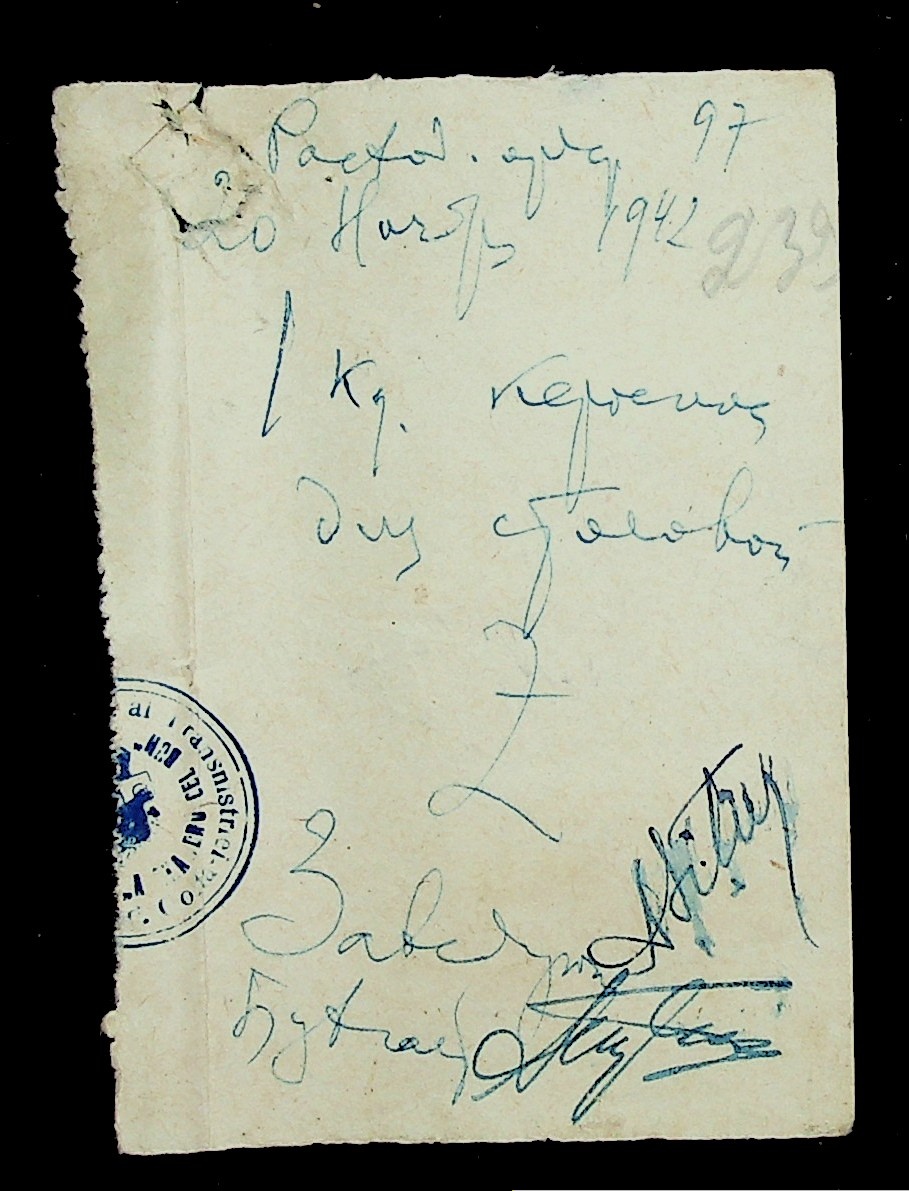 Расход. орд. 97
20 Ноябр 1942
239
1 кг. керосина
для столовой
Завед
Бухгал
CEL BUN"